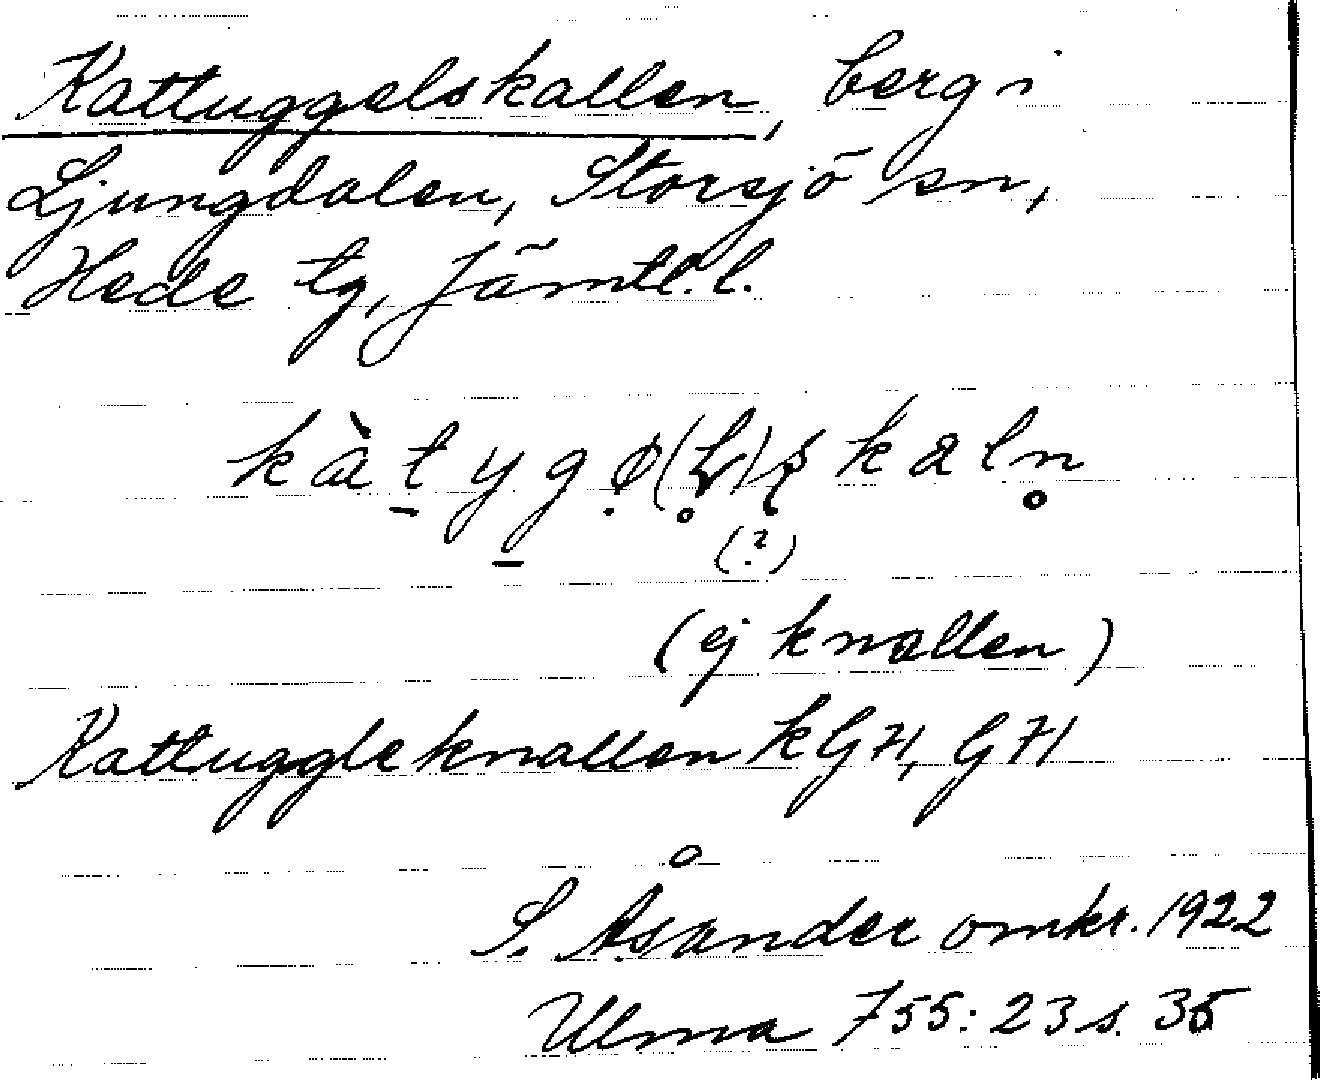 Kattuggelskallen, berg i
Ljungdalen, Storsjö sn,
Hede tg, Jämtl. l.
(?)
(ej knallen)
Kattuggleknallen kG71, G71
S. Åsander omkr. 1922
Ulma 755: 23 s. 35